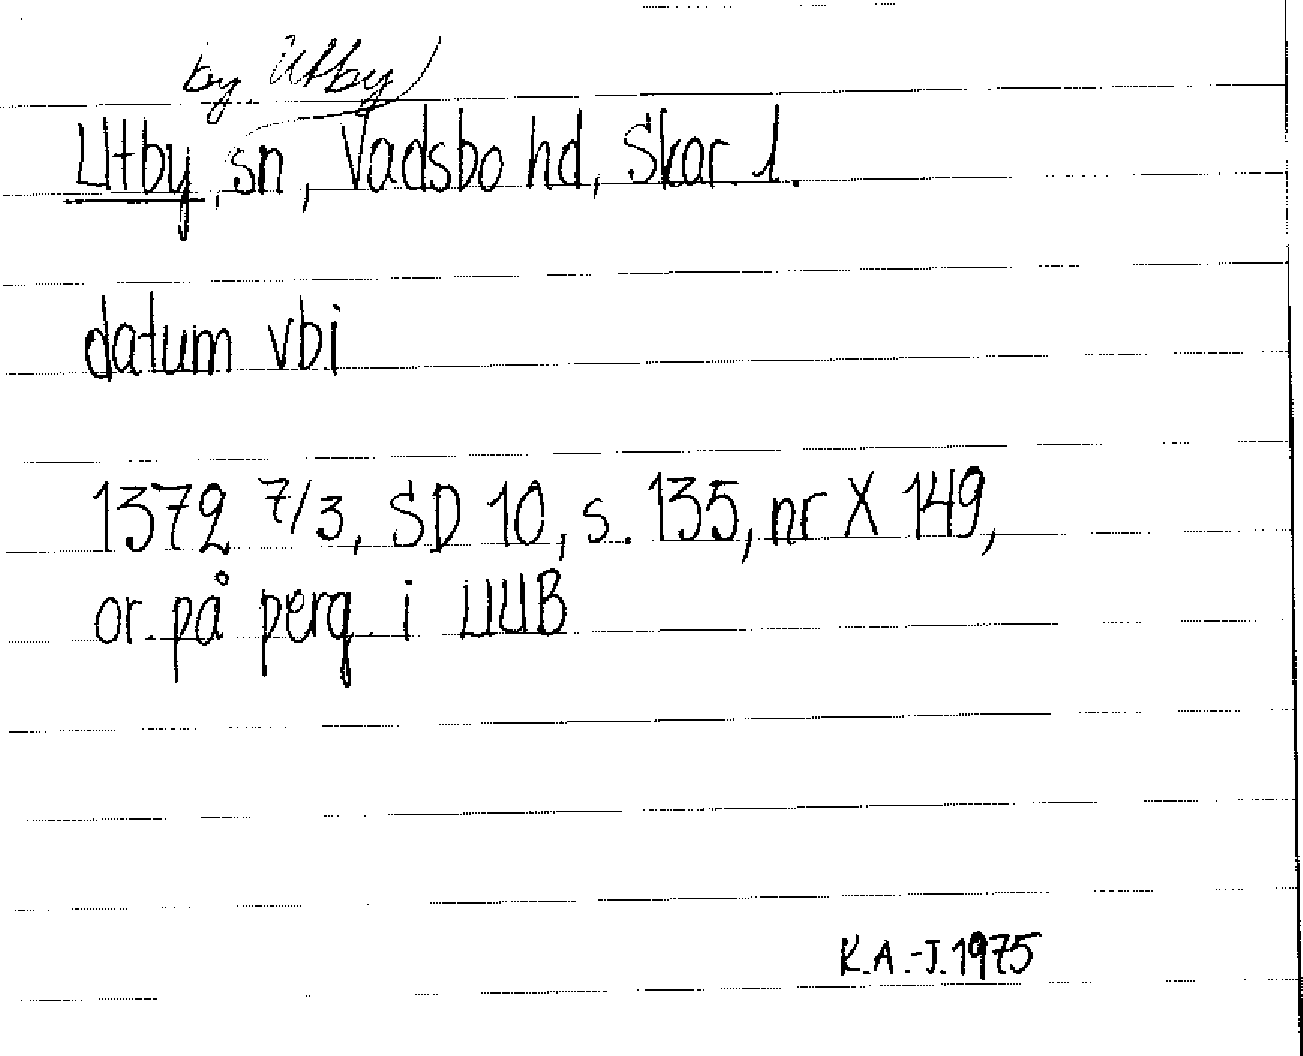 by Utby
Utby, sn, Vadsbo hd, Skar. l.
datum vbi
1372 7/3, SD 10, s. 135, nr X 149,
or. på perg. i UUB
K.A.-J. 1975